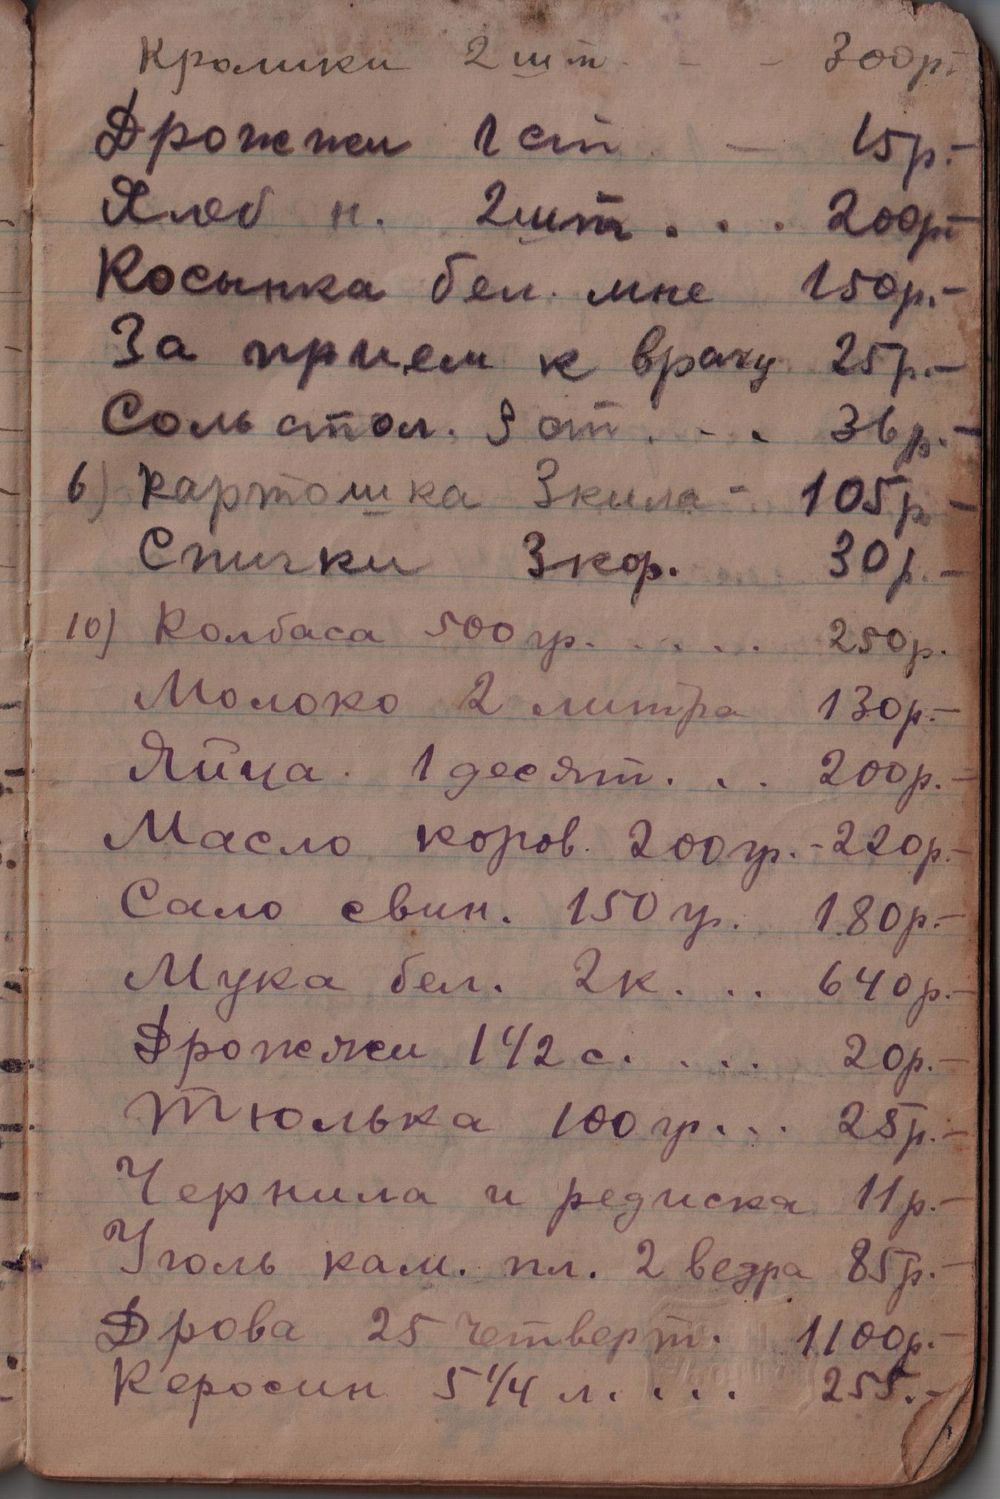 Кролики 2 шт. - - 300р.
Дрожжи 1 ст. - 15р.-
Хлеб н. 2 шт. . . 200р.-
Косынка бел. мне 150р.-
За прием к врачу 25р.-
Соль стол. 9 ст. - . 36р.-
6) Картошка 3 кила - 105р.-
Спички 3 кор. 30р.-
10) Колбаса 500 гр. . . . . 250р.
Молоко 2 литра 130р.-
Яйца. 1 десят. . . 200р.-
Масло коров. 200 гр. - 220р.-
Сало свин. 150 гр. 180р.-
Мука бел. 2 к. . . 640р.-
Дрожжи 1 1/2 с. . . . 20р.-
Тюлька 100 гр. . . 25р.-
Чернила и редиска 11р.-
Уголь кам. пл. 2 ведра 85р.-
Дрова 25 четверт. 1100р.-
Керосин 5 1/4 л. . . . 255.-